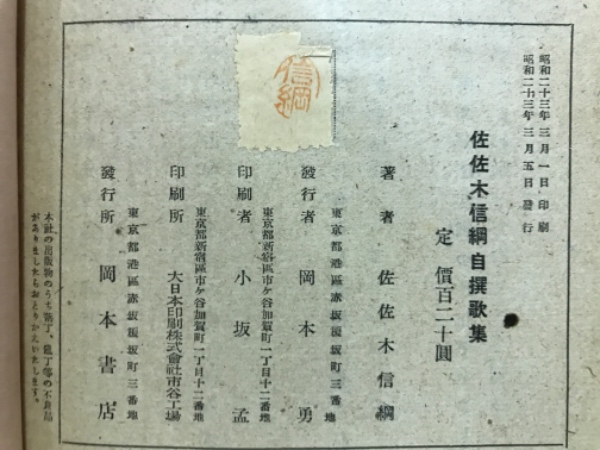 昭和二十三年三月一日印刷
昭和二十三年三月五日發行
佐佐木信綱自撰歌集
定價百二十圓
著者 佐佐木信綱
東京都港區赤坂榎坂町三番地
發行者 岡本勇
東京都新宿區市ケ谷加賀町一丁目十二番地
印刷者 小坂孟
東京都新宿區市ケ谷加賀町一丁目十二番地
印刷所 大日本印刷株式會社市谷工場
東京都港區赤坂榎坂町三番地
發行所 岡本書店
本社の出版物のうち落丁、亂丁等の不良品
がありましたらおとりかえいたします。
信綱